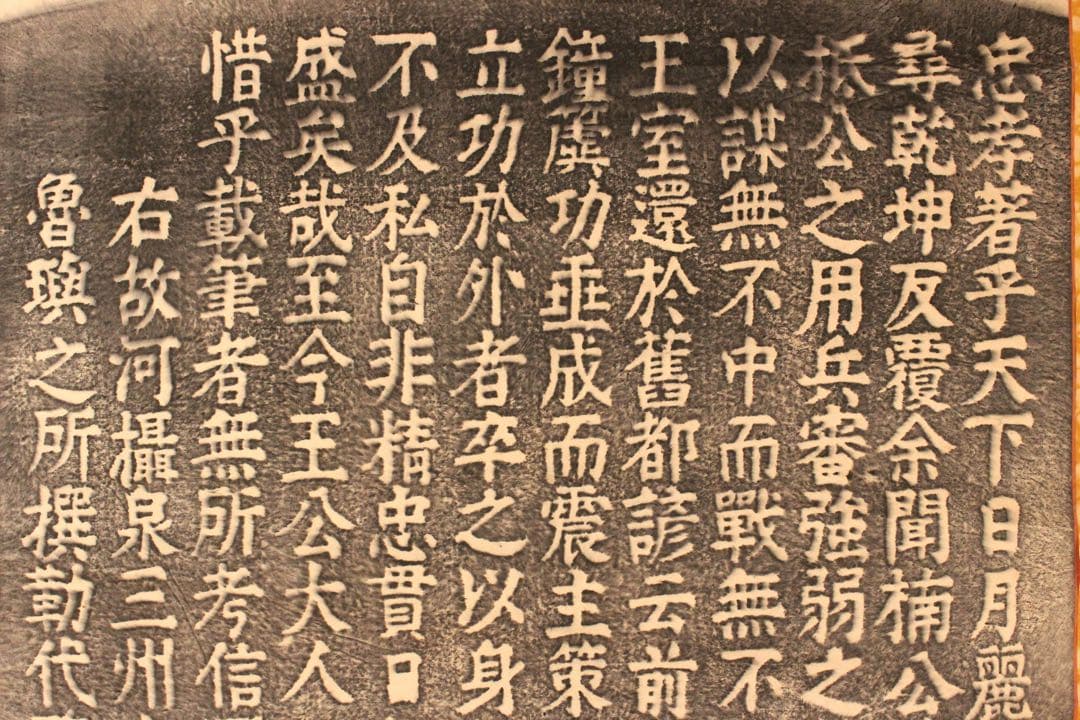 忠孝著乎天下日月麗
尋乾坤反覆余聞楠公
抵公之用兵審強弱之
以謀無不中而戰無不
王室還於舊都諺云前
鐘虡功垂成而震主策
立功於外者卒之以身
不及私自非精忠貫日
盛矣哉至今王公大人
惜乎載筆者無所考信
右故河攝泉三州
魯璵之所撰勒代